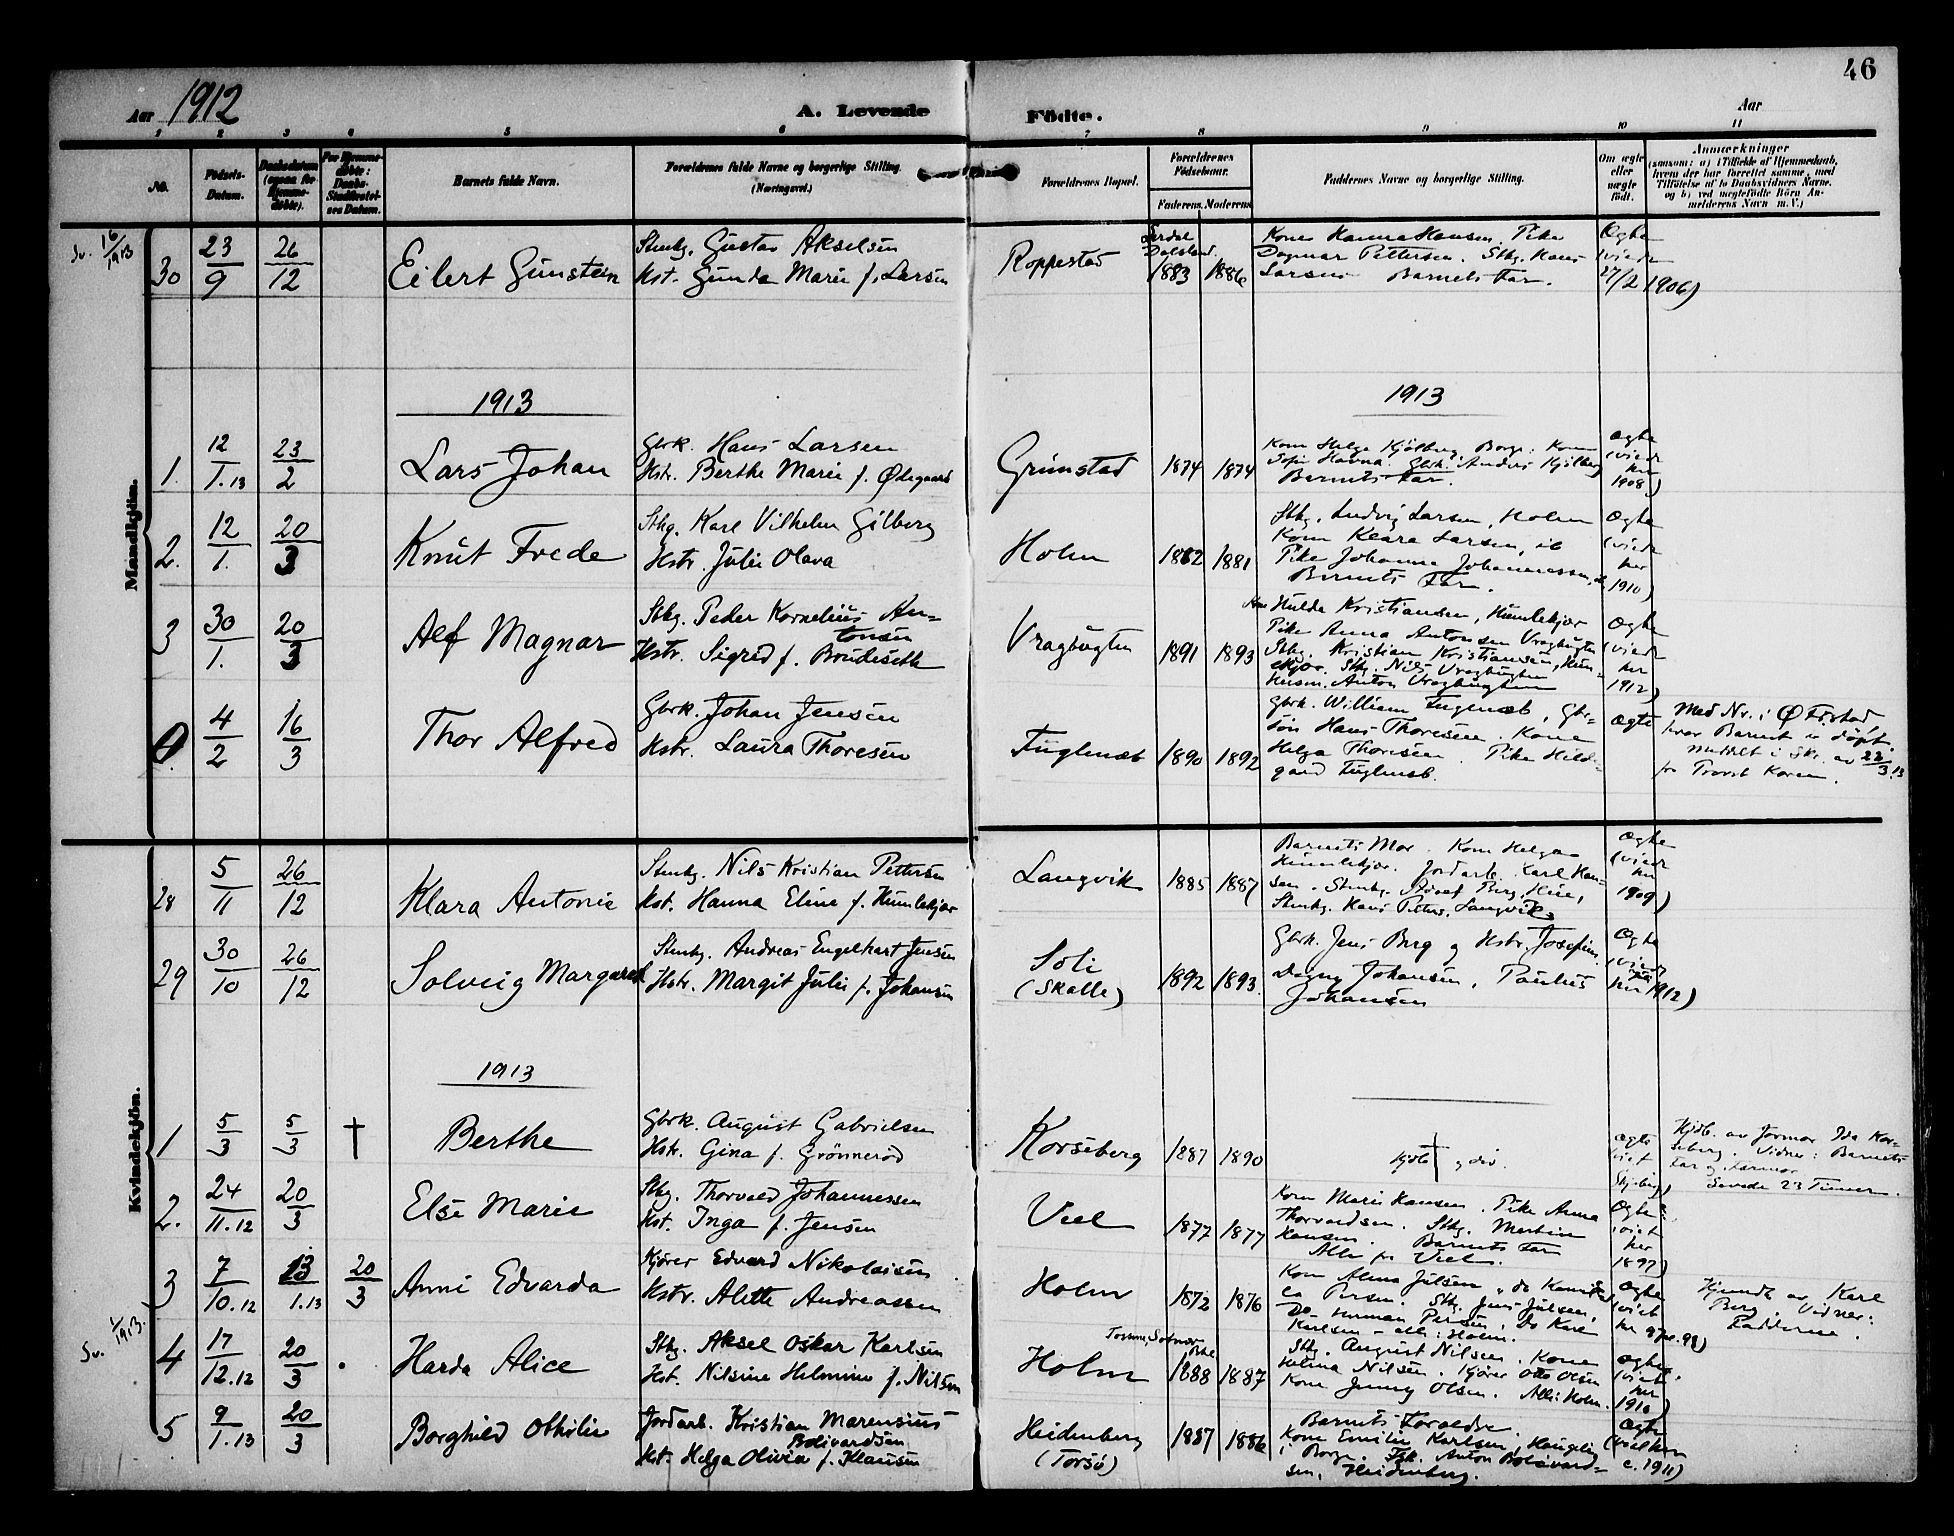 46
Aar 1912
A. Levende
Födte.
Aar
1 2 3 4 5 6 7 8 9 10 11
No.
Födsels-
Datum.
Daabsdatum
(ogsaa for
Hjemme-
döbte).
For Hjemme-
döbte:
Daabs-
Stadfæstel-
ses Datum.
Barnets fulde Navn.
Forældrenes fulde Navne og borgerlige Stilling.
(Næringsvei.)
Forældrenes Bopæl.
Forældrenes
Födselsaar.
Faderens. Moderens.
Faddernes Navne og borgerlige Stilling.
Om ægte
eller
uægte
födt.
Anmærkninger
(saasom: a) i Tilfælde af Hjemmedaab,
hvem der har forrettet samme, med
Tilföielse af to Daabsvidners Navne.
og b) ved uægtefödte Börn An-
melderens Navn m. V.)
Mandkjön.
30
23/9
26/12
Eilert Gunsten
Stenhg. Gustav Akselsen
Hst. Gunda Marie f. Larsen
Roppestad
1883
1886
Kone Hanna Hansen. Pike
Dagmar Pettersen. Sthg. Hans
Larsen Barnets Far.
Ægte
(viede
27/2 1906)
1913
1913
1.
12/1.13
23/2
Lars Johan
Gbrk. Hans Larsen
Hstr. Berthe Marie f. Ødegaard
Grimstad
1874
1874
Kone Helga Kjölberg, Borge: Kone
Sofie Havna. Gbrk. Anders Kjölberg
Barnets Far.
ægte
(viede
her
1908)
2.
12/1.
20/3
Knut Frede
Sthg. Karl Vilhelm Gilberg
Hstr. Julie Olava
Holm
1882
1881
Sthg. Ludvig Larsen, Holm
Kone Klara Larsen, ib
Pike Johanne Johannessen, ib
Barnets Far.
Ægte
(viede
her
1910)
3
30/1.
20/3
Alf Magnar
Sthg. Peder Kornelius An-
tonsen
Hstr. Sigrid f. Brudeseth
Vragbugten
1891
1893
Kone Hulda Kristiansen, Humlekjær
Pike Anna Antonsen Vragbugten
Sthg. Kristian Kristiansen, Hum-
lekjær. Sthg. Nils Vragbugten
Husm. Anton Vragbugten
Ægte
(viede
her
1912)
4/2
16/3
Thor Alfred
Gbrk. Johan Jensen
Hstr. Laura Thoresen
Fuglenæb
1890
1892
Gbrk. William Fuglenæb, Gb-
sön Hans Thoresen. Kone
Helga Thoresen. Pike Hilde-
gard Fuglenæb.
Ægte
Med Nr. i Ø Fostad
hvor Barnet er döpt.
meddelt i Skr. av 22/3.13
fr Provst Koren.
Kvindekjön.
28
5/11
26/12
Klara Antonie
Stenhg. Nils Kristian Pettersen
Hst. Hanna Eline f. Humlekjær
Langvik
1885
1887
Barnets Mor. Kone Helga
Humlekjær. Jordarb. Karl Han-
sen. Stenhg. Josef Berg, Hue,
Stenhg. Hans Petters. Langvik.
Ægte
(viede
her
1909)
29
30/10
26/12
Solveig Margareth
Stenhg. Andreas Engelhart Jensen
Hstr. Margit Julie f. Johansen
Soli
(Skalle)
1892
1893
Gbrk. Jens Berg og Hstr. Josefine.
Dagny Johansen, Paulus
Johansen
Ægte
(viede
her 1912)
1913
1
5/3
5/3
†
Berthe
Gbrk. August Gabrielsen
Hstr. Gina f. Grönneröd
Korseberg
1887
1890
†
Ægte
viet
Skjeberg)
Hjdb. av Formor Ida Kor-
seberg. Vidner: Barnets
Far og Farmor
Levede 23 Timer.
2.
24/11.12
20/3
Else Marie
Sthg. Thorvald Johannessen
Hst. Inga f. Jensen
Veel
1877
1877
Kone Marie Hansen. Pike Anna
Thorvaldsen. Sthg. Martin
Hansen. Barnets Far
Alle fr Veel.
Ægte
(viet
her
1897)
3
7/10.12
13/1.13
20/3
Anni Edvarda
Kjörer Edvard Nikolaisen
Hstr. Alette Andreassen
Holm
1872
1876
Kone Alma Julsen, do
Persen. Sthg. Jens Julsen,
Do Herman Persen, Do Karl
Karlsen – alle: Holm.
Ægte
(viet
her 98)
Hjemdb. av Karl
Berg. Vidner:
Fadderne.
4
17/12.12
20/3
Harda Alice
Sthg. Aksel Oskar Karlsen
Hst. Nilsine Helmine f. Nilsen
Holm
1888
1887
Sthg. August Nilsen. Kone
Helma Nilsen. Kjörer Otto Olsen
Kone Jenny Olsen. Alle: Holm.
Ægte
(viet
her
1910)
5
9/1.13
20/3
Borghild Othilie
Jordarb. Kristian Marensius
Bolivardsen
Hst. Helga Olivia f. Klausen
Heidenberg
(Torsö)
1887
1886
Barnets Forældre.
Kone Emilie Karlsen, Haugelien
i Borge. Fgk. Anton Bolivard-
sen, Heidenberg.
Ægte
(viet her
c. 1911)